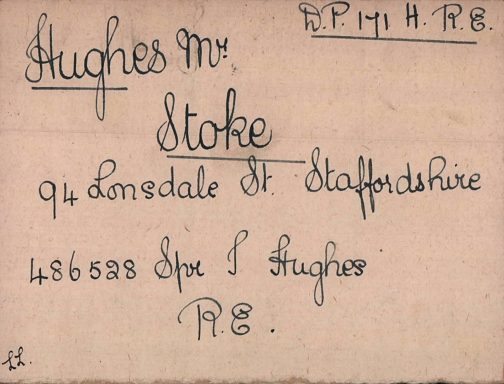 D.P. 171 H. R.E.
Hughes Mr
Stoke
94 Lonsdale St. Staffordshire
486528 Spr J Hughes
R.E.
LL.